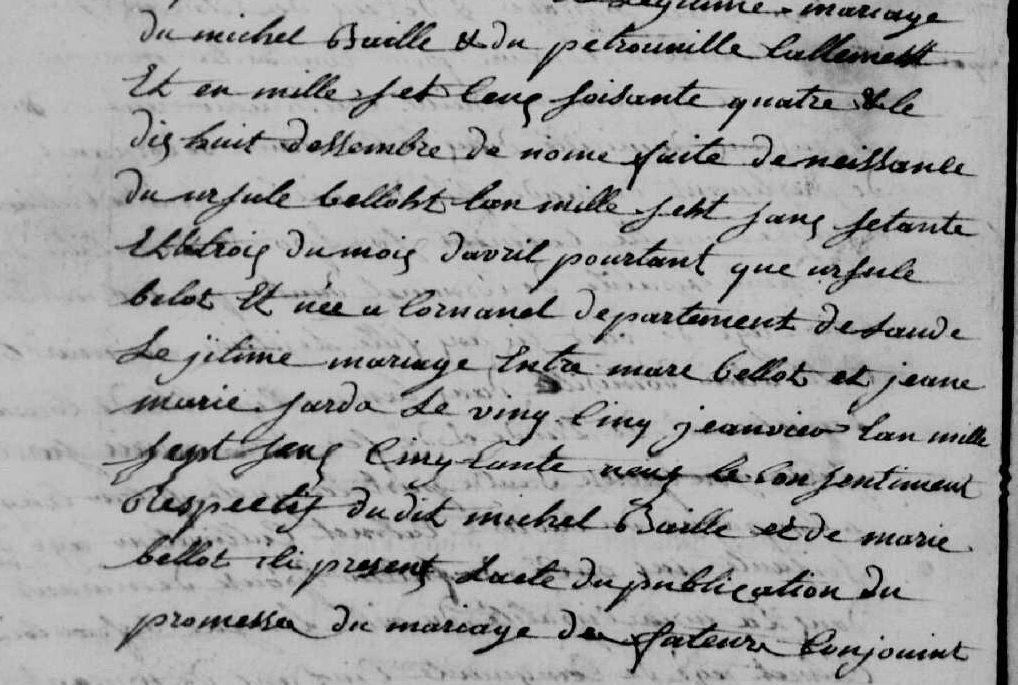 Legitime mariage
du michel Baille & du petrounille lallement
Et en mille set Cens soisante quatre & le
dis huit dessembre de nome faite de neissance
du ursule bellot lan mille sept sans setante
Et trois du mois davril pourtant que ursule
belot Et née a Cornanel departement de Laude
Le jitime mariage Entre marc bellot et jeane
marie sarda Le vinq Cinq jeanvier lan mille
sept sans Cinq Cante neuf le Consentiment
Respectif dudit michel Baille et de marie
bellot ili present Lacte du publication du
promesse du mariage de fateurs Conjouint